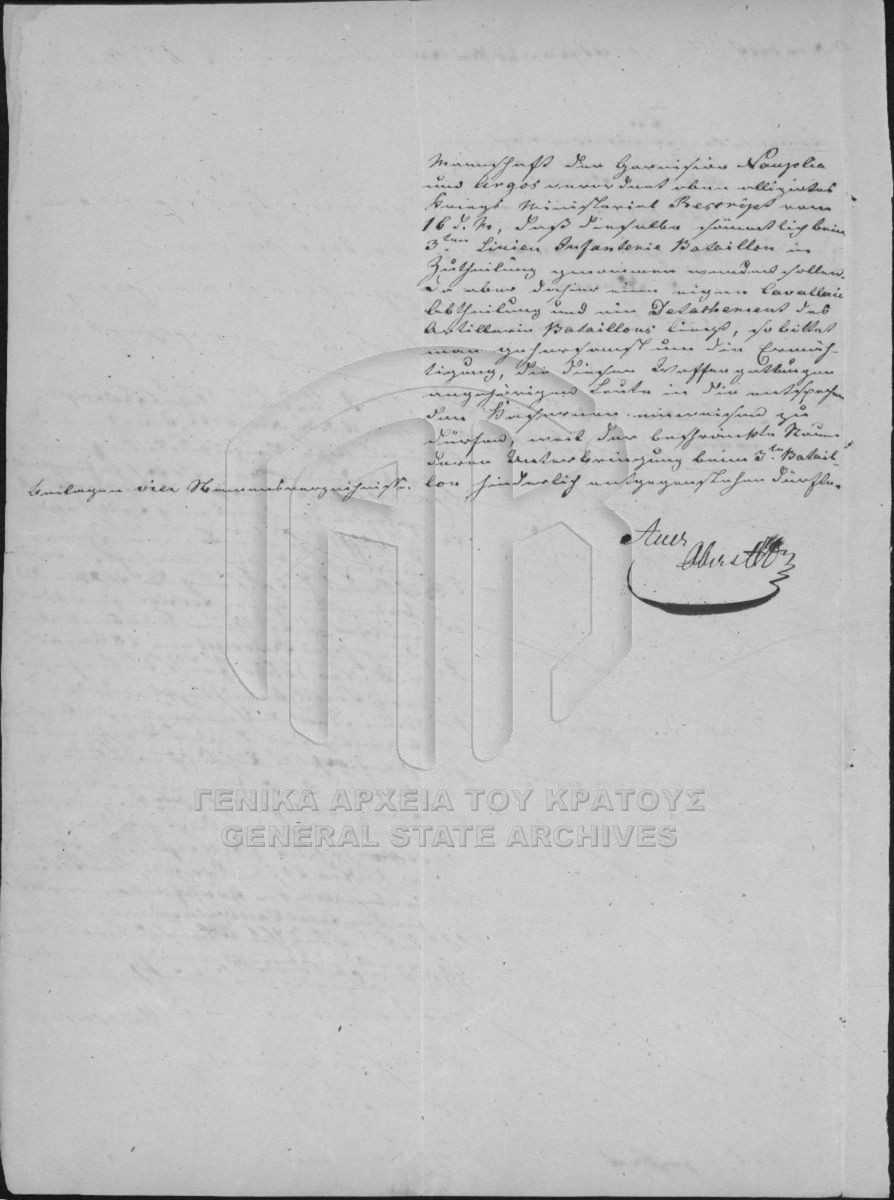 Mannschaft der Garnision Nauplia
und Argos verordnet oben allegirtes
Kriegs-Ministerial Rescript vom
16 d. M, daß dieselbe sämmtlich beim
3ten Linien Infanterie Bataillon in
Zutheilung genommen werden sollen.
Da aber dahier eine eigene Cavallerie
Abtheilung und ein Detachement des
Artillerie Bataillons liegt, so bittet
man gehorsamst um die Ermäch-
tigung, die diesen Waffengattungen
angehörigen Leute in die entsprechen
den Kasernen einweisen zu
dürfen, weil der beschränkte Raum
deren Unterbringung beim 3ten Batail-
lon hinderlich entgegenstehen dürfte.
Beilagen vier Namensverzeichnisse.
Auer
Oberst
ΓΕΝΙΚΑ ΑΡΧΕΙΑ ΤΟΥ ΚΡΑΤΟΥΣ
GENERAL STATE ARCHIVES